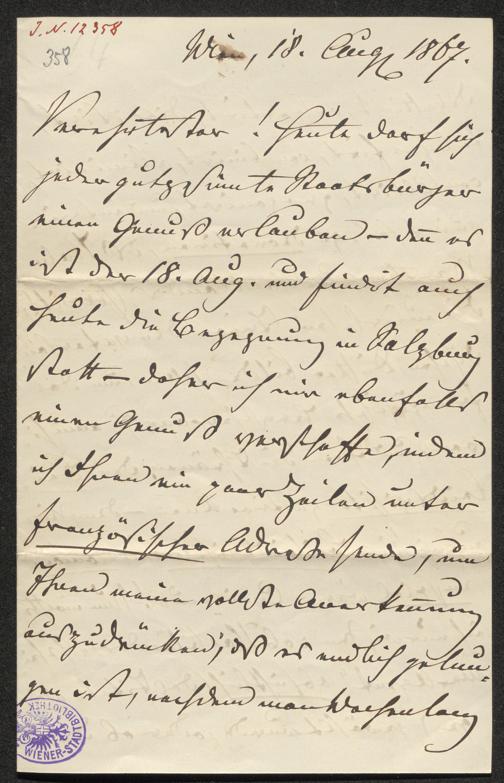 J. N. 12358
358
Wien, 18. Aug 1867.
Verehrtester! Heute darf sich
jeder gutgesinnte Staatsbürger
einen Genuß erlauben – den̅ es
ist der 18. Aug. und findet auch
heute die Begegnung in Salzburg
statt – daher ich mir ebenfalls
einen Genuß verschaffe, indem
ich Ihnen ein paar Zeilen unter
französischer Adresse sende, um
Ihnen meine vollste Anerken̅ung
auszudrücken, daß es endlich gelun-
gen ist, nachdem man Wochenlang
WIENER-STADTBIBLIOTHEK